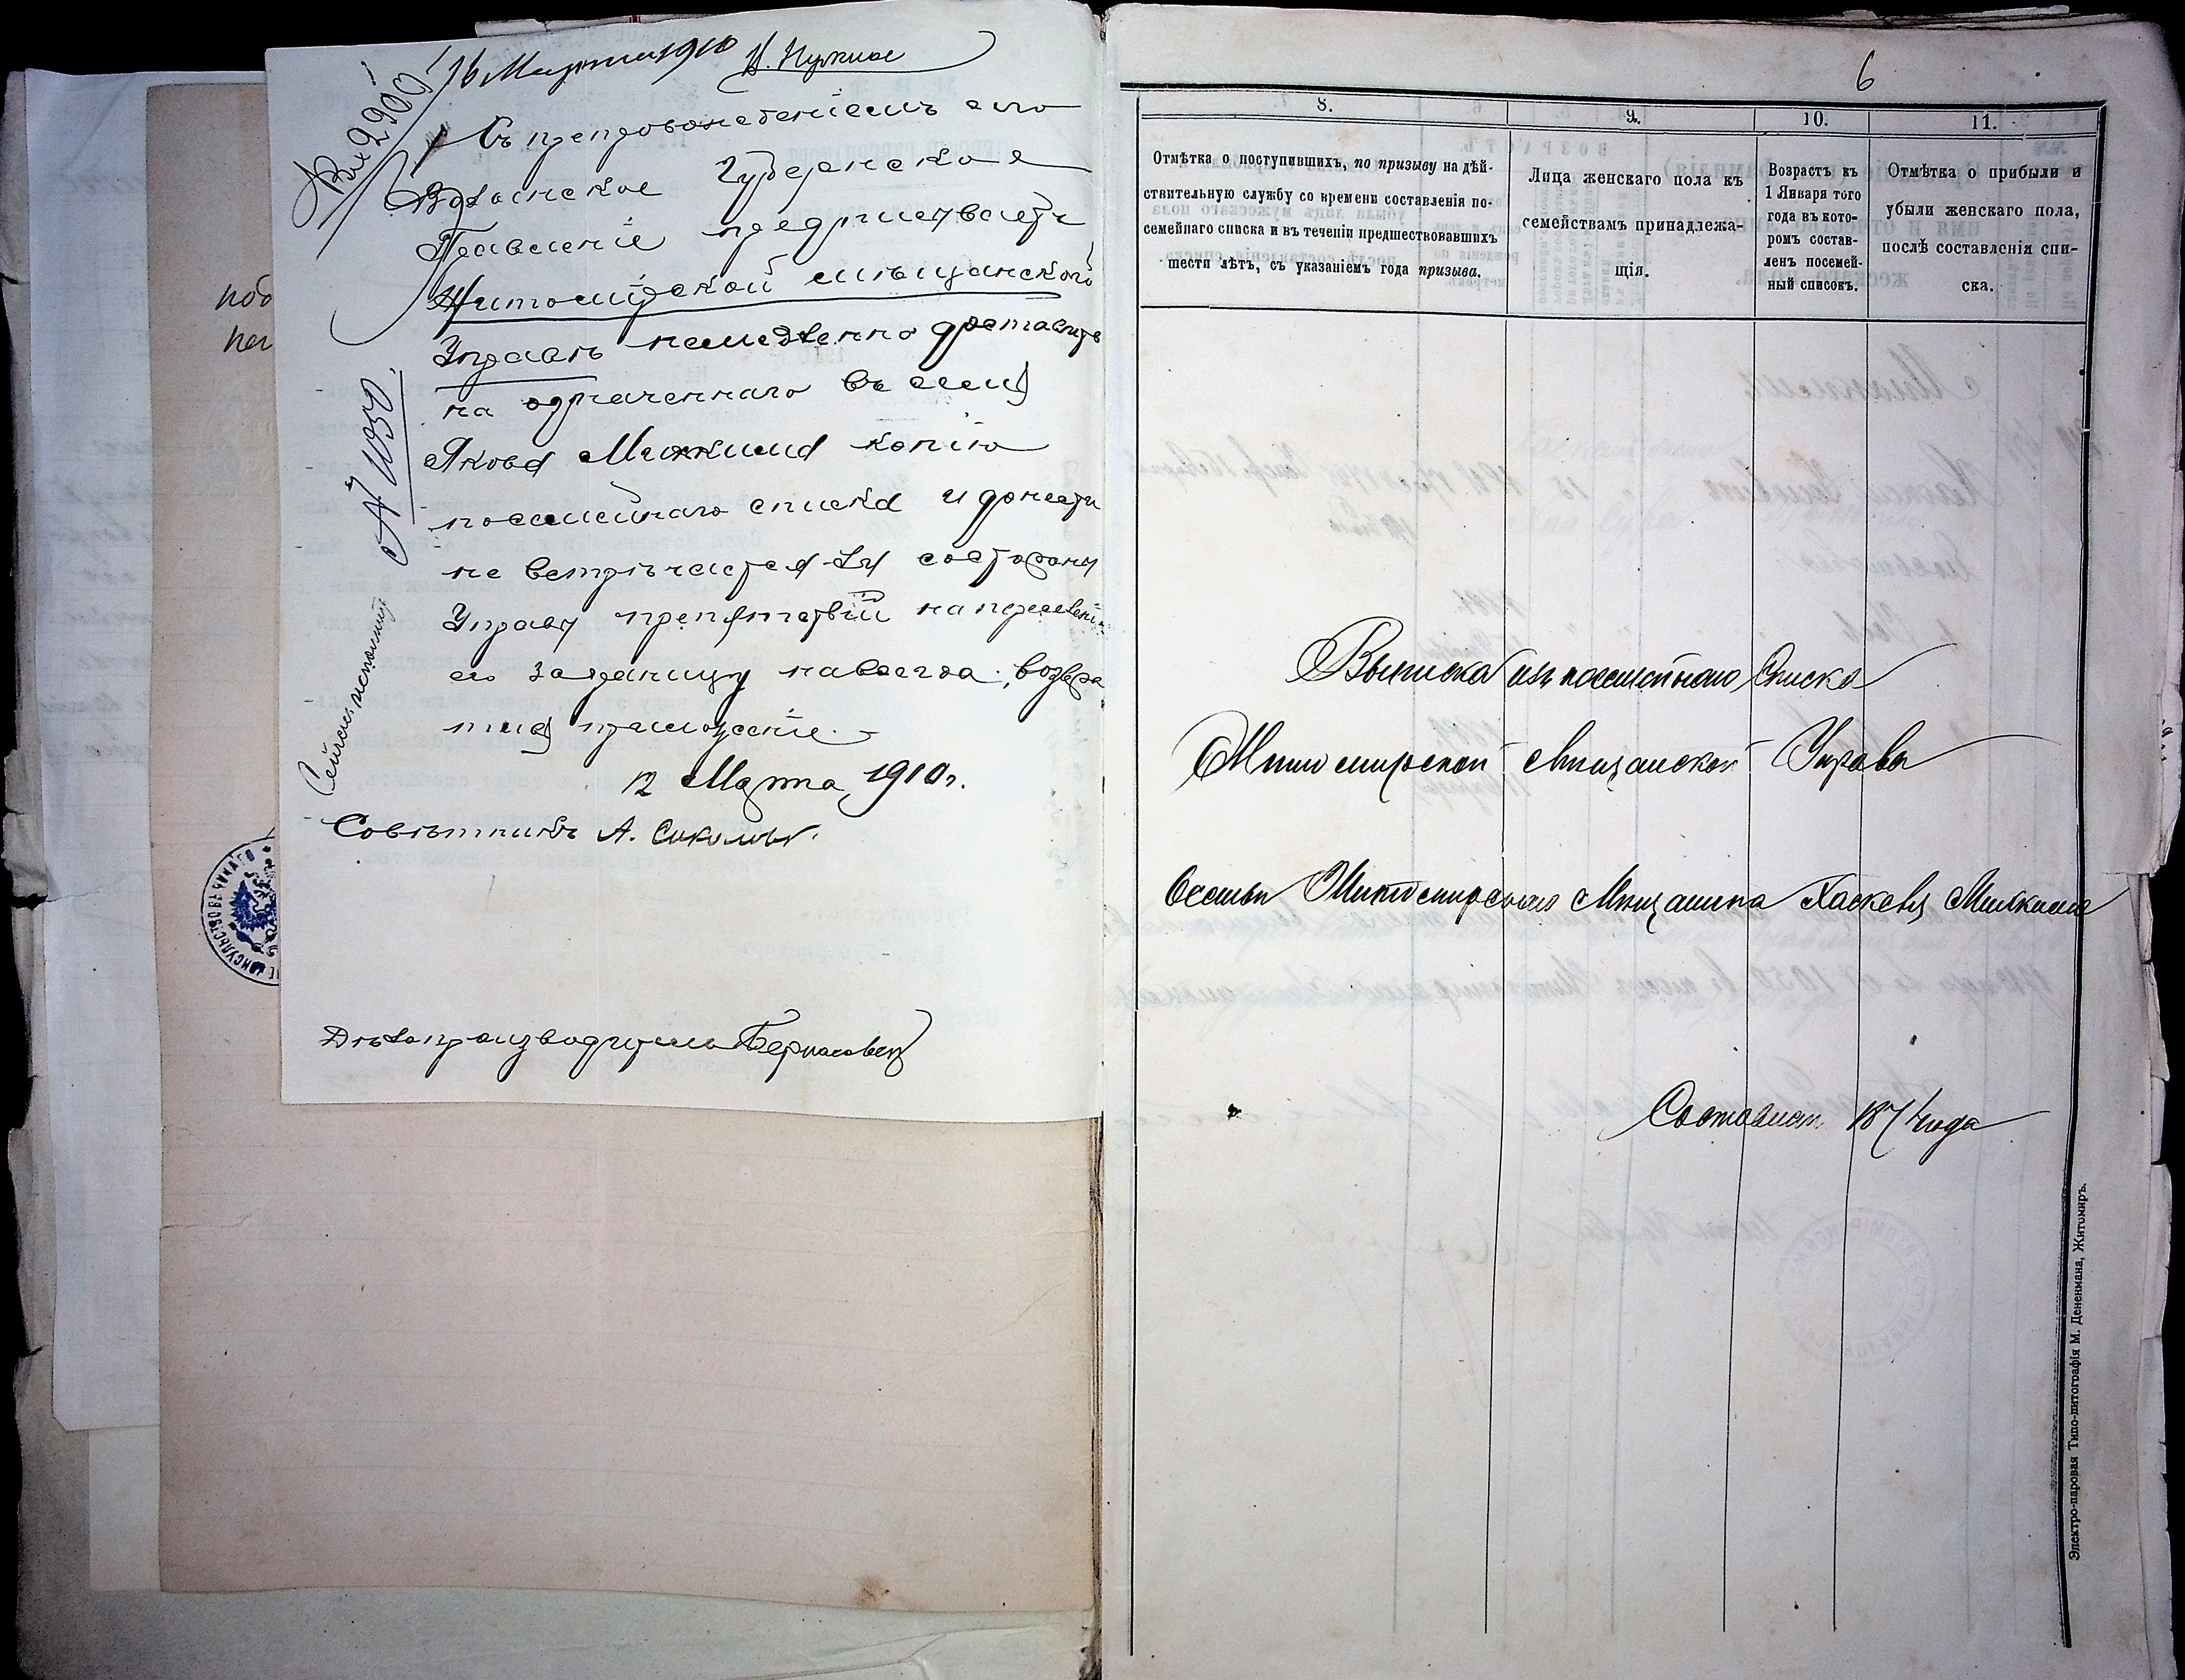 16 Марта 1910
Съ препровожденіемъ сего
Волынское Губернское
Правленіе предписываетъ
Житомірской мѣщанской
Управѣ немедленно доставить
на означеннаго въ семъ
Якова Милкиса копію
посемейнаго списка и донести
не встрѣчается ли со стороны
Управы препятствій на переселеніе
его заграницу навсегда, возвра
тивъ приложеніе.
12 Марта 1910 г.
Совѣтникъ А. Соколовъ.
Дѣлопроизводитель
№ 1050.
Сейчасъ исполнить
6
8.
9.
10.
11.
Отмѣтка о поступившихъ, по призыву на дѣй-
ствительную службу со времени составленія по-
семейнаго списка и въ теченіи предшествовавшихъ
шести лѣтъ, съ указаніемъ года призыва.
Лица женскаго пола къ
семействамъ принадлежа-
щія.
Возрастъ къ
1 Января того
года въ кото-
ромъ состав-
ленъ посемей-
ный списокъ.
Отмѣтка о прибыли и
убыли женскаго пола,
послѣ составленія спи-
ска.
Выписка изъ посемейнаго Списка
Житомирской Мѣщанской Управы
о семьи Житомирскаго Мѣщанина Хаскеля Милкиса
Составлен. 1874 года
Электро-паровая Типо-литографія М. Дененмана, Житомиръ.